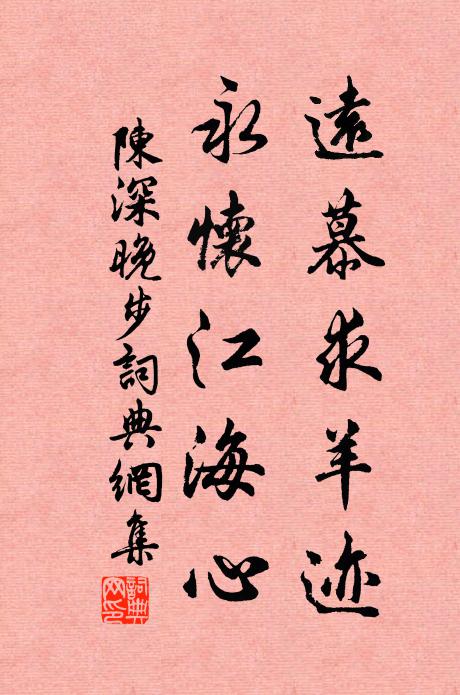 遠慕求羊迹
永懷江海心
陳深晚步詞典網集
詞典网印